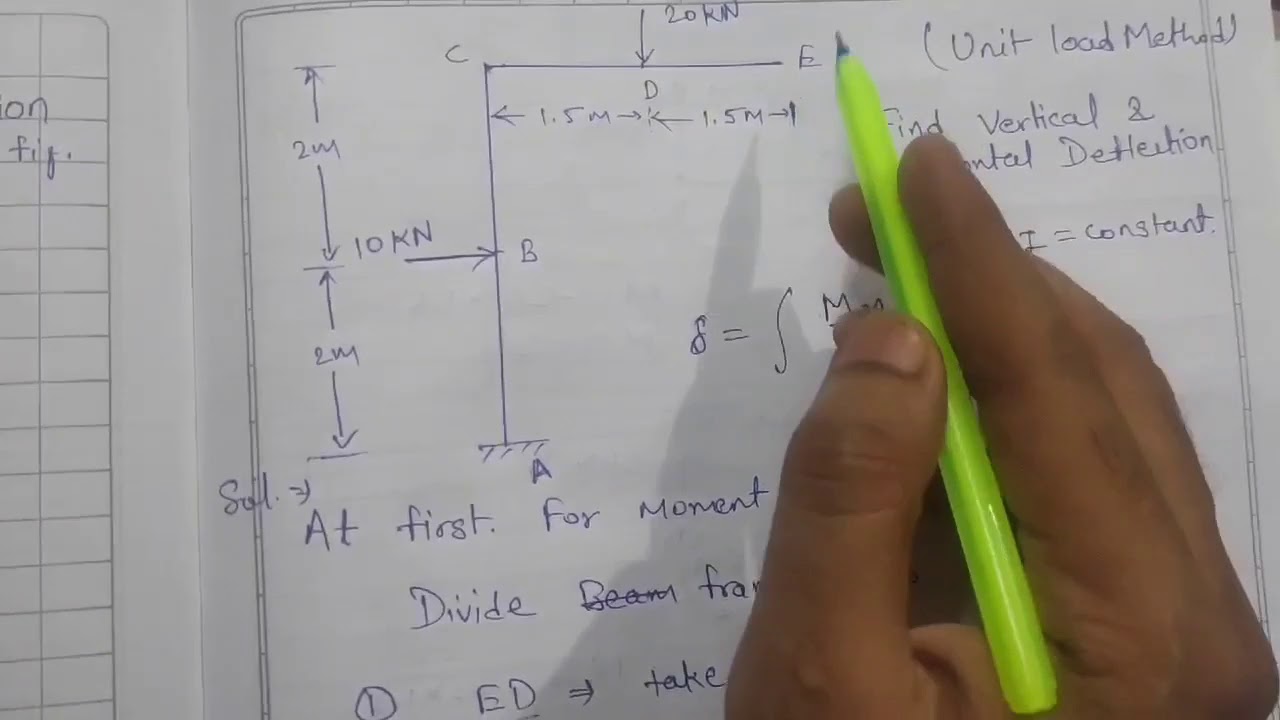 ion
fig.
20KN
C
E
D
1.5M
1.5M
2M
10KN
B
2M
A
(Unit load Method)
Find Vertical &
ontal Deflection
I = constant.
δ = ∫
Sol. ⇒
At first. For Moment
Divide Beam fra
① ED ⇒ take